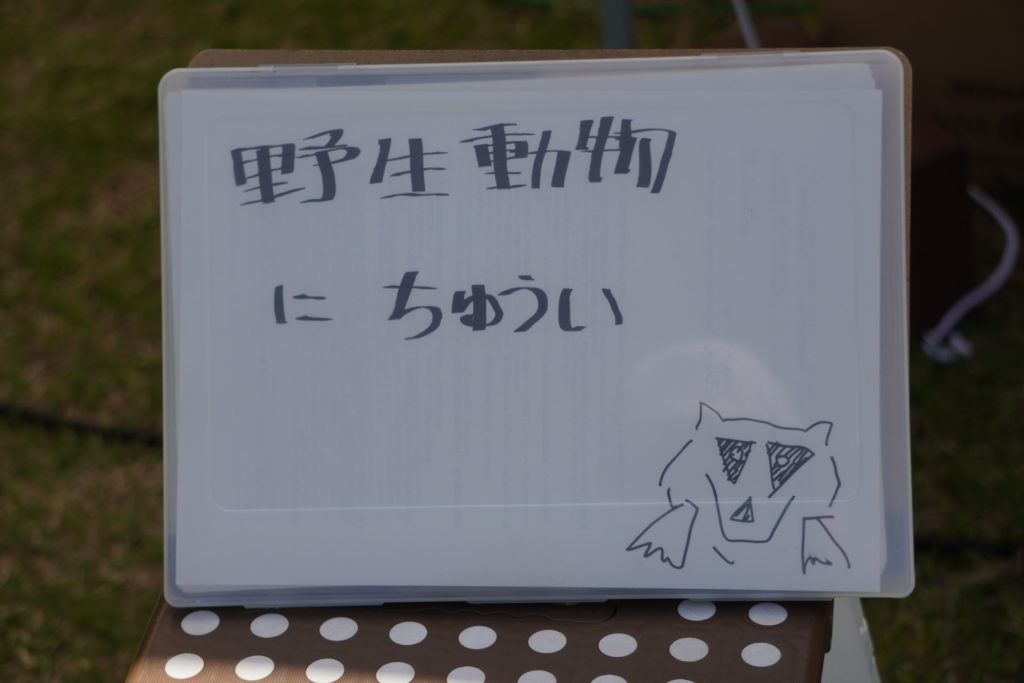 野生動物
に ちゅうい